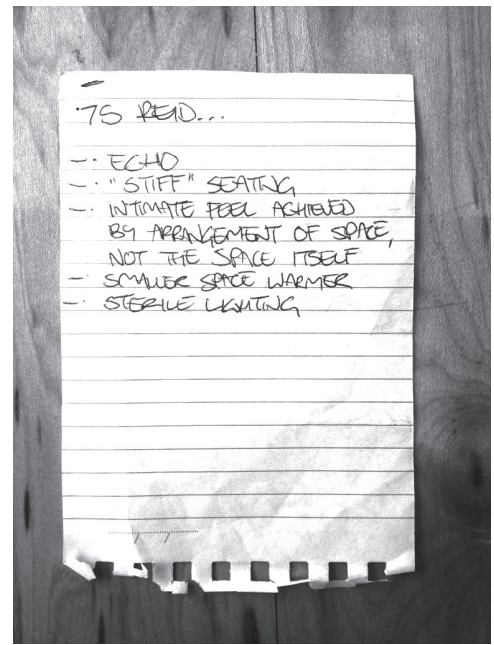 '75 REID...
- · ECHO
- · "STIFF" SEATING
- · INTIMATE FEEL ACHIEVED
BY ARRANGEMENT OF SPACE,
NOT THE SPACE ITSELF
- · SMALLER SPACE WARMER
- · STERILE LIGHTING